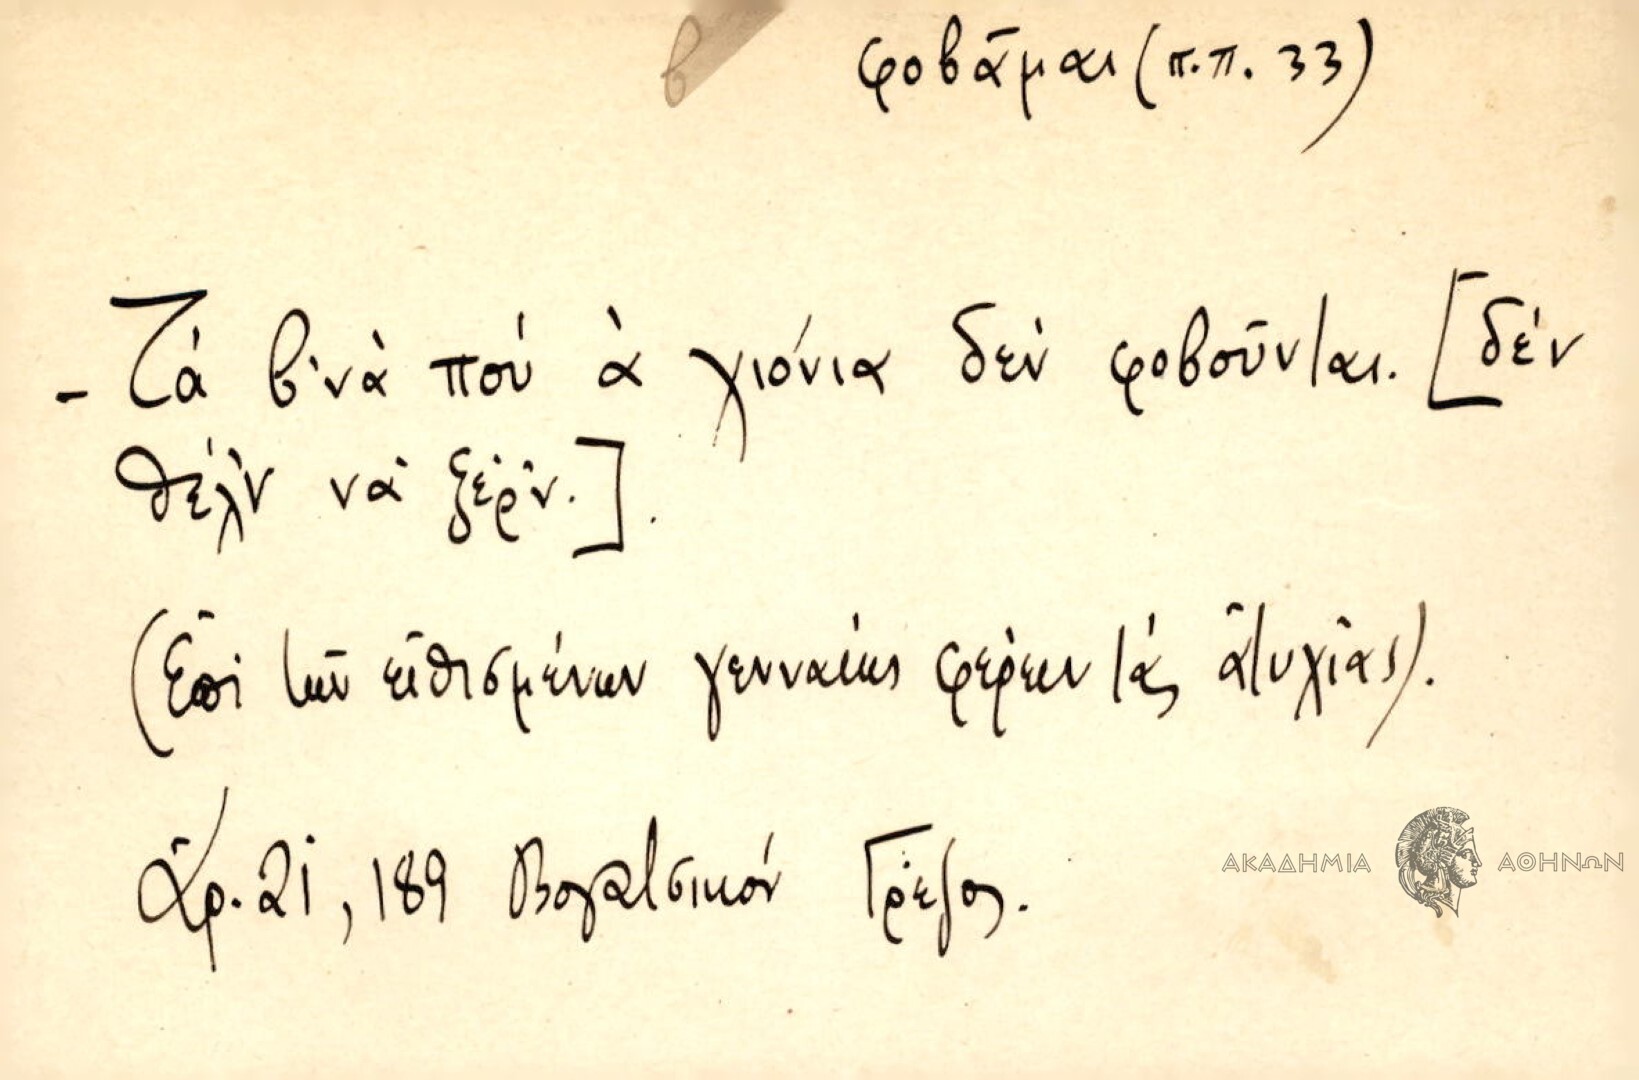 β φοβᾶμαι (π.π. 33)
- Τά β'νὰ πού ἀ χιόνια δεν φοβοῦνται. [δέν
θέλ'ν νὰ ξέρ'ν.].
(Ἐπί τῶν εἰθισμένων γενναίως φέρειν τάς ἀτυχίας).
Ἀρ. 21, 189 Βογατσικόν Γρέζος.
ΑΚΑΔΗΜΙΑ ΑΘΗΝΩΝ